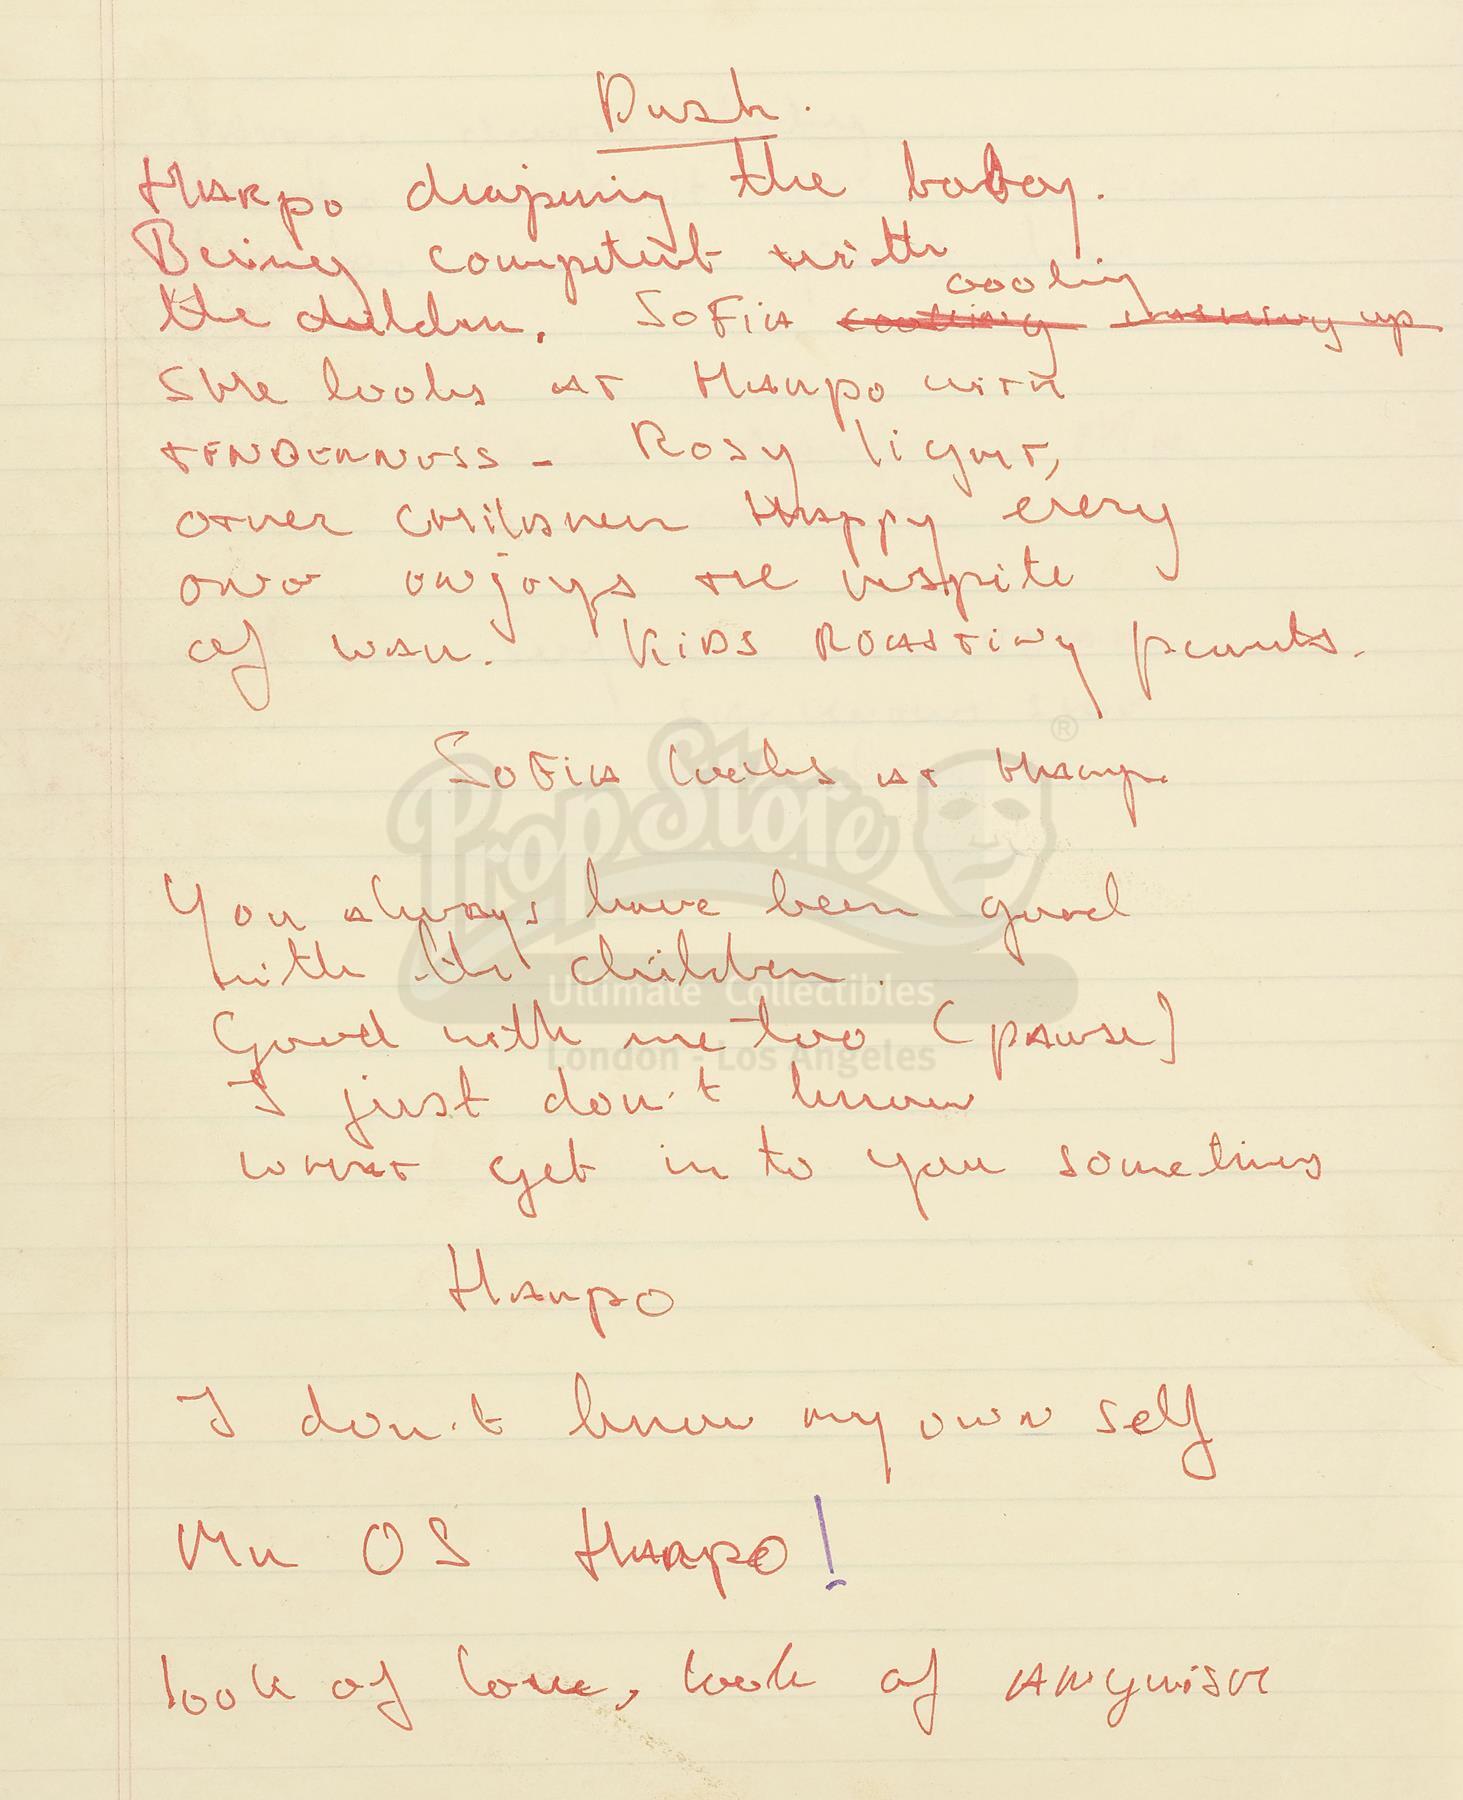 Dusk.
Harpo diapering the baby.
Being competent with
cooking
the children. Sofia cooking washing up
She looks at Harpo with
tenderness - Rosy light,
other children Happy every
one enjoys the respite
of war. Kids Roasting peanuts.
Sofia looks at Harpo
You always have been good
with the children.
Good with me too (pause)
I just don't know
what get in to you sometimes
Harpo
I don't know my own self
Mr OS Harpo!
look of love, look of anguish
PropStore ®
Ultimate Collectibles
London - Los Angeles